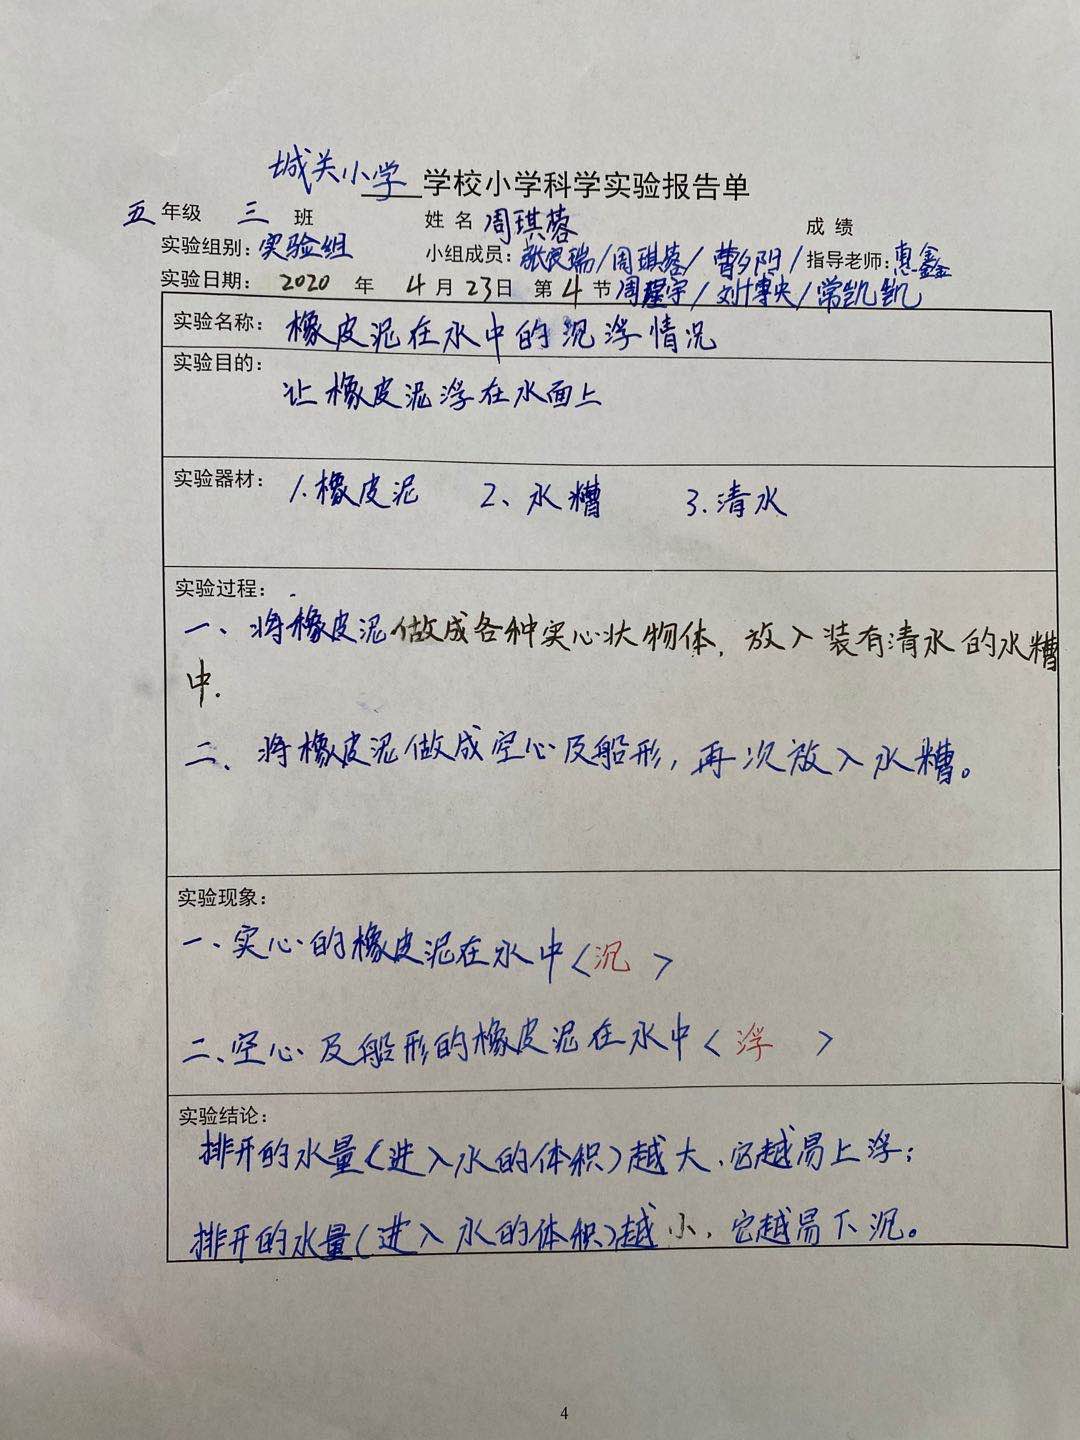 城关小学 学校小学科学实验报告单
五 年级 三 班 姓 名 周琪蓉 成 绩
实验组别：实验组 小组成员：瑞/周琪蓉/曹夕阳/ 指导老师：惠鑫
实验日期： 2020 年 4 月 23 日 第 4 节 周宇/刘博央/常凯凯
实验名称： 橡皮泥在水中的沉浮情况
实验目的：
让橡皮泥浮在水面上
实验器材： 1.橡皮泥 2、水槽 3.清水
实验过程：
一、将橡皮泥做成各种实心状物体，放入装有清水的水糟
中.
二、将橡皮泥做成空心及船形，再次放入水糟。
实验现象：
一、实心的橡皮泥在水中〈沉 〉
二、空心及船形的橡皮泥在水中〈浮 〉
实验结论：
排开的水量(进入水的体积)越大，它越易上浮；
排开的水量(进入水的体积)越小，它越易下沉。
4